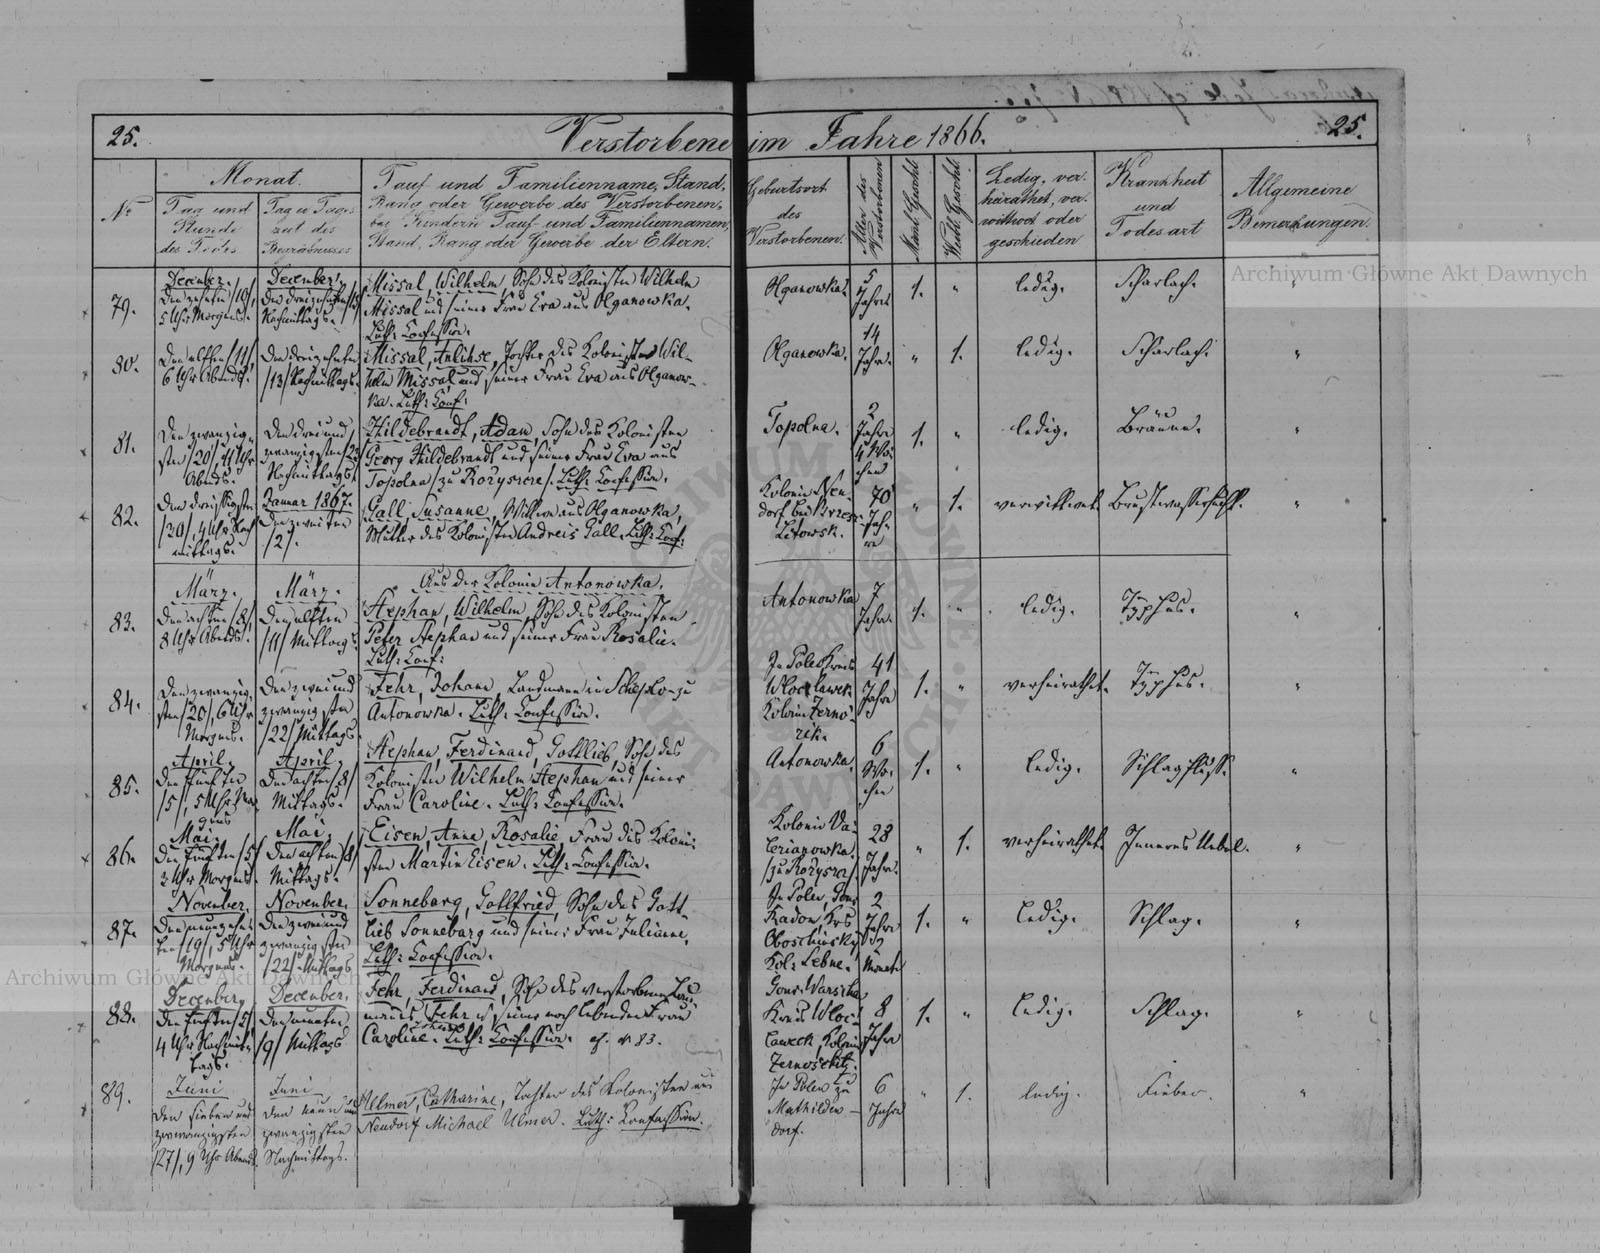 25.
Verstorbene im Jahre 1866.
25.
No
Monat.
Tag und Stunde des Todes
Tag u Tageszeit des Begräbnisses
Tauf und Familienname, Stand,
Rang oder Gewerbe des Verstorbenen,
bei Kindern Tauf- und Familiennamen,
Stand, Rang oder Gewerbe der Eltern.
Geburtsort
des
Verstorbenen.
Alter des Verstorbenen
Männl. Geschl.
Weibl. Geschl.
Ledig, ver-
heirathet, ver-
wittwet oder
geschieden
Krankheit
und
Todesart
Allgemeine
Bemerkungen.
79.
December.
Den zehnten /10/,
5 Uhr Morgens.
December.
Den dreizehnten /13/
Nachmittags.
Missal, Wilhelm, Sohn des Kolonisten Wilhelm
Missal und seiner Frau Eva aus Olganowka.
Luth: Confession.
Olganowka.
5
Jahre.
1.
"
ledig.
Scharlach.
"
80.
Den elften /11/,
6 Uhr Abends.
Den dreizehnten
/13/ Nachmittags.
Missal, Julchse, Tochter des Kolonisten Wil-
helm Missal und seiner Frau Eva aus Olganow-
ka. Luth: Conf:
Olganowka.
14
Jahr.
"
1.
ledig.
Scharlach.
"
81.
Den zwanzig-
sten /20/, 11 Uhr
Abends.
Den drei und
zwanzigsten /23/
Nachmittags.
Hildebrandt, Adam, Sohn des Kolonisten
Georg Hildebrandt und seiner Frau Eva aus
Topolna /zu Rozyszcze/. Luth: Confession.
Topolna.
2
Jahre
4 Wo-
chen
1.
"
ledig.
Bräune.
"
82.
Den dreissigsten
/30/, 4 Uhr Nach-
mittags.
Januar 1867.
Den zweiten
/2/.
Gall, Susanne, Wittwe aus Olganowka,
Mutter des Kolonisten Andreis Gall. Luth: Conf:
Kolonie Neu-
dorf bei Brzesc
Litowsk.
70
Jah-
re
"
1.
verwittwet.
Brustwassersucht.
"
Aus der Kolonie Antonowka.
83.
März.
Den achten /8/
8 Uhr Abends.
März.
Den elften
/11/ Mittags.
Stephan, Wilhelm, Sohn des Kolonisten
Peter Stephan und seiner Frau Rosalie.
Luth: Conf:
Antonowka
7
Jahr.
1.
"
ledig.
Typhus.
"
84.
Den zwanzig-
sten /20/, 6 Uhr
Morgens.
Den zwei und
zwanzigsten
/22/ Mittags.
Fehr, Johann, Landmann in Scheplo zu
Antonowka. Luth: Confession.
In Polen Kreis
Wloclawek
Kolonie
41
Jahre
1.
"
verheirathet.
Typhus.
"
85.
April.
Den fünften
/5/, 5 Uhr Mor-
gens
April.
Den achten /8/
Mittags.
Stephan, Ferdinand, Gottlieb, Sohn des
Kolonisten Wilhelm Stephan und seiner
Frau Caroline. Luth: Confession.
Antonowka.
6
Wo-
chen
1.
"
ledig.
Schlagfluss.
"
86.
Mai.
Den fünften /5/
3 Uhr Morgens.
Mai.
Den achten /8/
Mittags.
Eisen, Anna, Rosalie, Frau des Koloni-
sten Martin Eisen. Luth: Confession.
Kolonie Va-
lerianowka
/zu Rozyszcze/.
28
Jahr.
"
1.
verheirathet.
Inneres Uebel.
"
87.
November.
Den neunzehn-
ten /19/, 5 Uhr
Morgens.
November.
Den zwei und
zwanzigsten
/22/ Mittags
Sonneburg, Gottfried, Sohn des Gott-
lieb Sonneburg und seiner Frau Julianne.
Luth: Confession.
In Polen, Gouv
Radom, Krs
Oboschinsky
Kol: Lebne.
2
Jahre
Monate
1.
"
ledig.
Schlag.
"
88.
December,
Den fünften /5/
4 Uhr Nachmit-
tags.
December.
Den neunten
/9/ Mittags
Fehr, Ferdinand, Sohn des verstorbenen Land-
manns Johann Fehr u. seiner noch lebenden Frau
Caroline. Luth: Confession. cf. N 83.
Gouv. Warschau
Kreis Wloc-
laweck, Kolonie
8
Jahre
1.
"
ledig.
Schlag.
"
89.
Juni
Den sieben und
zwanzigsten
/27/, 9 Uhr Abends.
Juni
Den neun und
zwanzigsten
Nachmittags.
Ulmer, Catharine, Tochter des Kolonisten aus
Neudorf Michael Ulmer. Luth: Confession.
In Polen zu
Mathilden-
dorf.
6
Jahre
"
1.
ledig.
Fieber.
"
Archiwum Główne Akt Dawnych
Archiwum Główne Akt Dawnych